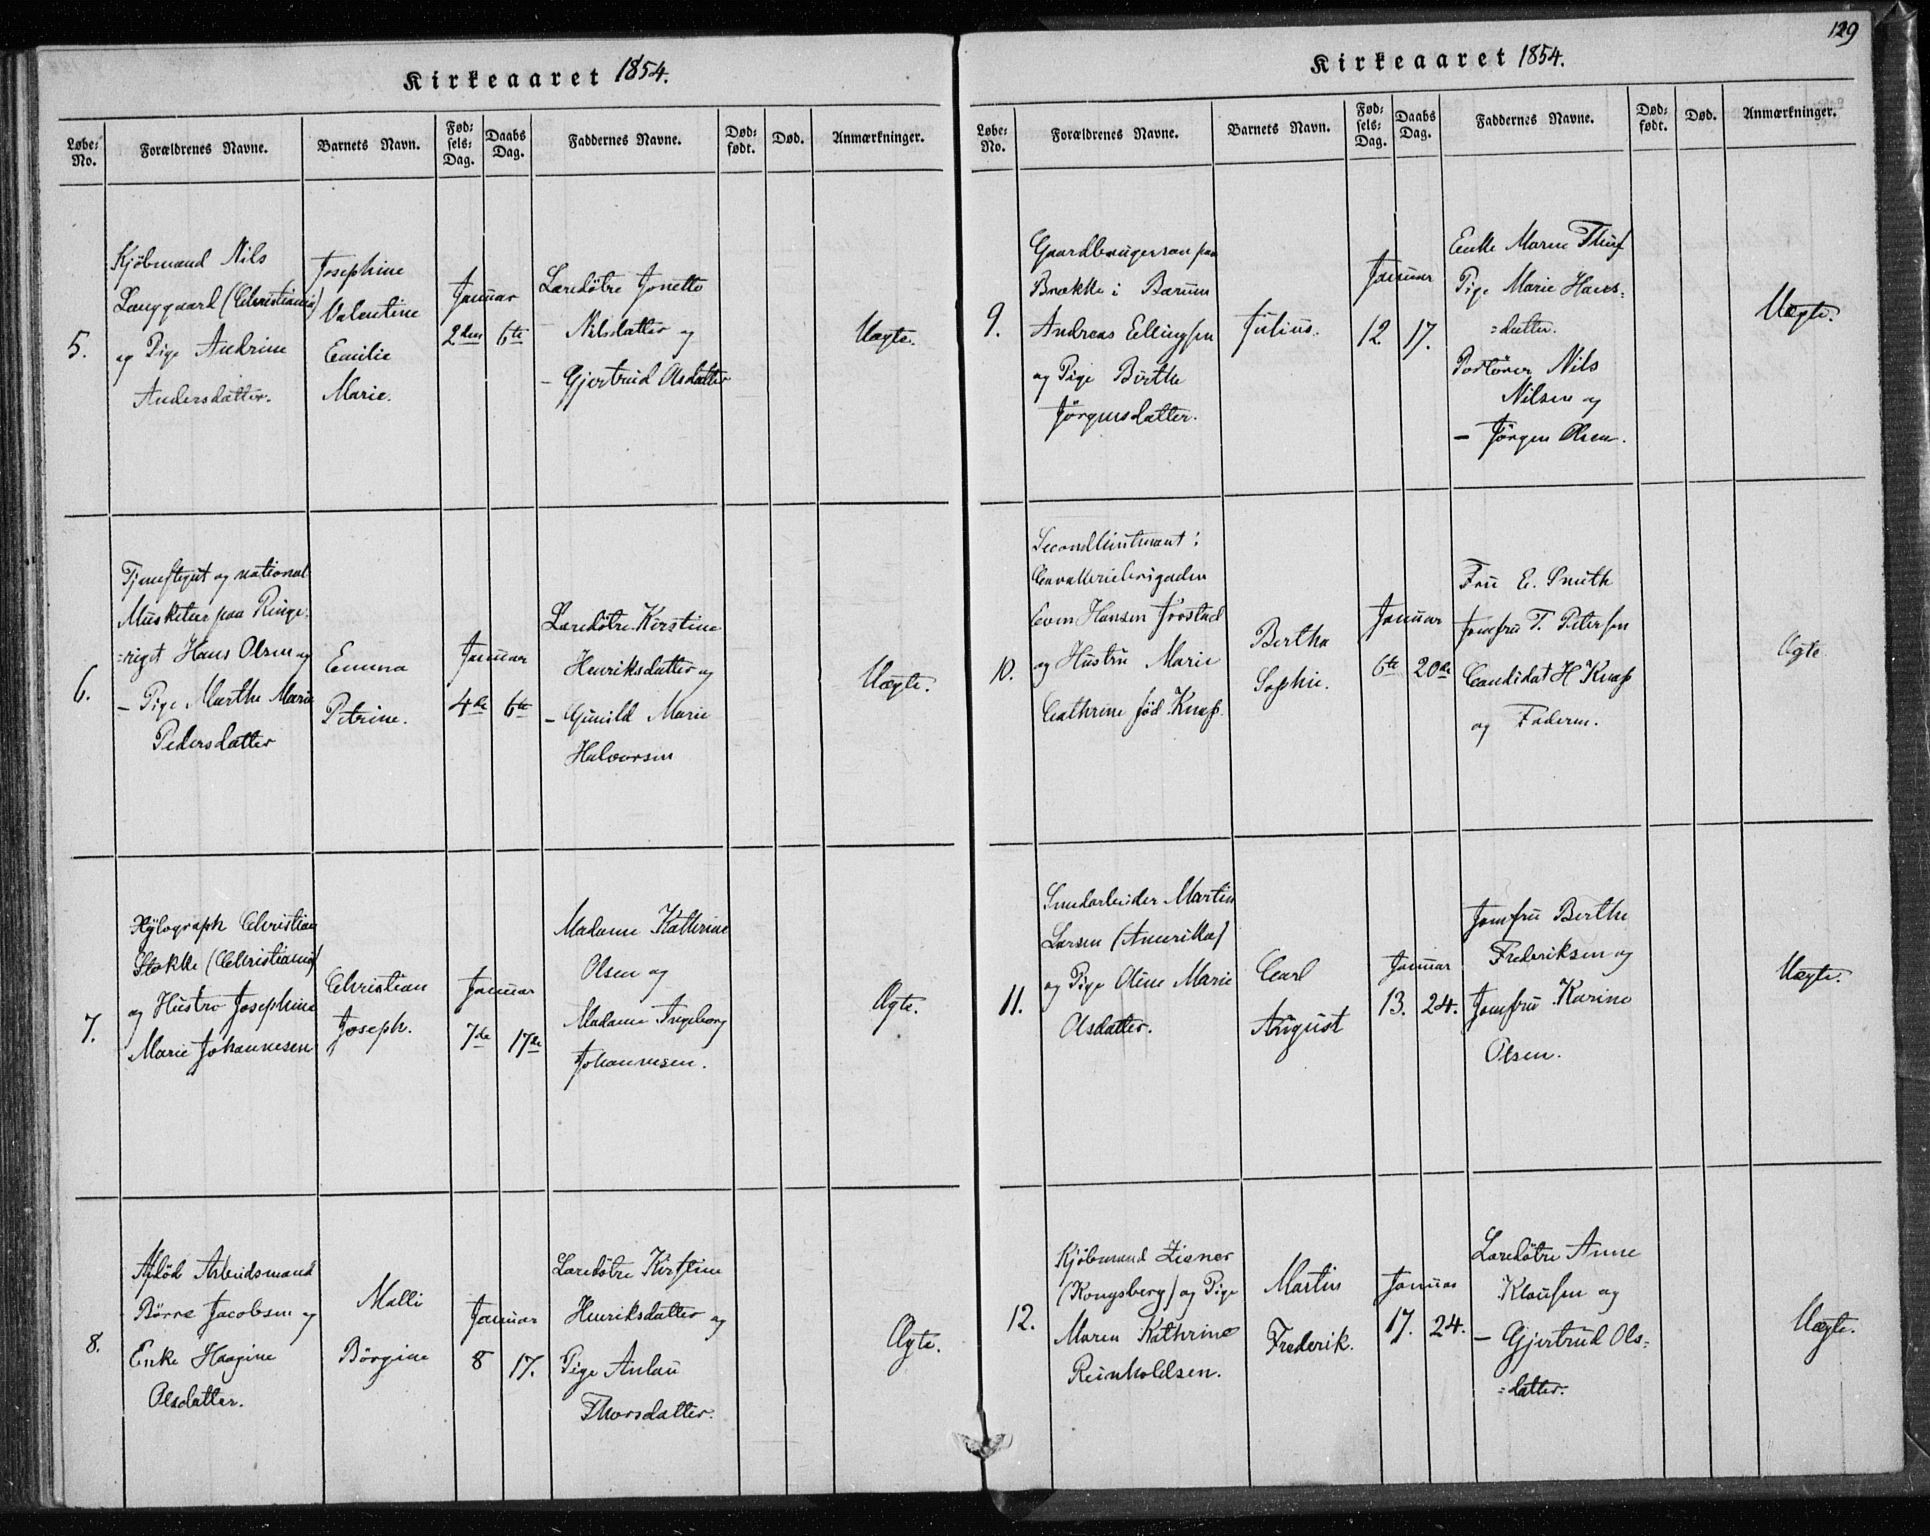 Kirkeaaret 1854.
Løbe-No.
Forældrenes Navne.
Barnets Navn.
Fød-sels-Dag.
Daabs Dag.
Faddernes Navne.
Død-født.
Død.
Anmærkninger.
5.
Kjöbmand Nils
Langgaard (Christiania)
og Pige Andrine
Andersdatter.
Josephine
Valentine
Emilie
Marie.
Januar
2den 6te
Læredötre Jonette
Nilsdatter og
– Gjertrud Olsdatter
Uægte.
6.
Tjenestegut og national
Musketeer paa Ringe-
=riget Hans Olsen og
– Pige Marthe Marie
Pedersdatter
Emma
Petrine.
Januar
4de 6te
Læredötre Kirstine
Henriksdatter og
– Gunild Marie
Halvorsen
Uægte.
7.
Xylograph Christian
Stokke (Christiania)
og Hustro Josephine
Marie Johannesen
Christian
Joseph.
Januar
7de 17de
Madame Kathrine
Olsen og
Madame Ingeborg
Johannesen.
Ægte.
8.
Afdöd Arbeidsmand
Börre Jacobsen og
Enke Haagine
Olsdatter.
Malli
Börgine
Januar
8 17.
Læredötre Kirstine
Henriksdatter og
Pige Anlau
Thorsdatter.
Ægte.
129
Kirkeaaret 1854.
Løbe-No.
Forældrenes Navne.
Barnets Navn.
Fød-sels-Dag.
Daabs Dag.
Faddernes Navne.
Død-født.
Død.
Anmærkninger.
9.
Gaardbrugersøn paa
Brække i Bærum
Andreas Ellingsen
og Pige Birthe
Jörgensdatter.
Julius.
Januar
12 17.
Enke Maren
Pige Marie Hans-
=datter.
Portörer Nils
Nilsen og
– Jörgen Olsen.
Uægte.
10.
Secondlieutnant i
Cavalleribrigaden
Even Hansen Jörstad
og Hustru Marie
Cathrine föd Knap.
Bertha
Sophie.
Januar
6te 20de
Fru E. Smith
Jomfru T. Petersen
Candidat H Knap
og Faderen.
Ægte
11.
Smedarbeider Martin
Larsen (Amerika)
og Pige Oline Marie
Olsdatter.
Carl
August
Januar
13. 24.
Jomfru Berthe
Frederiksen og
Jomfru Karine
Olsen.
Uægte.
12.
Kjöbmand Zisner
(Kongsberg) og Pige
Maren Kathrine
Reinholdsen.
Martin
Frederik.
Januar
17. 24.
Læredötre Anne
Klausen og
– Gjertrud Ols-
=datter.
Uægte.